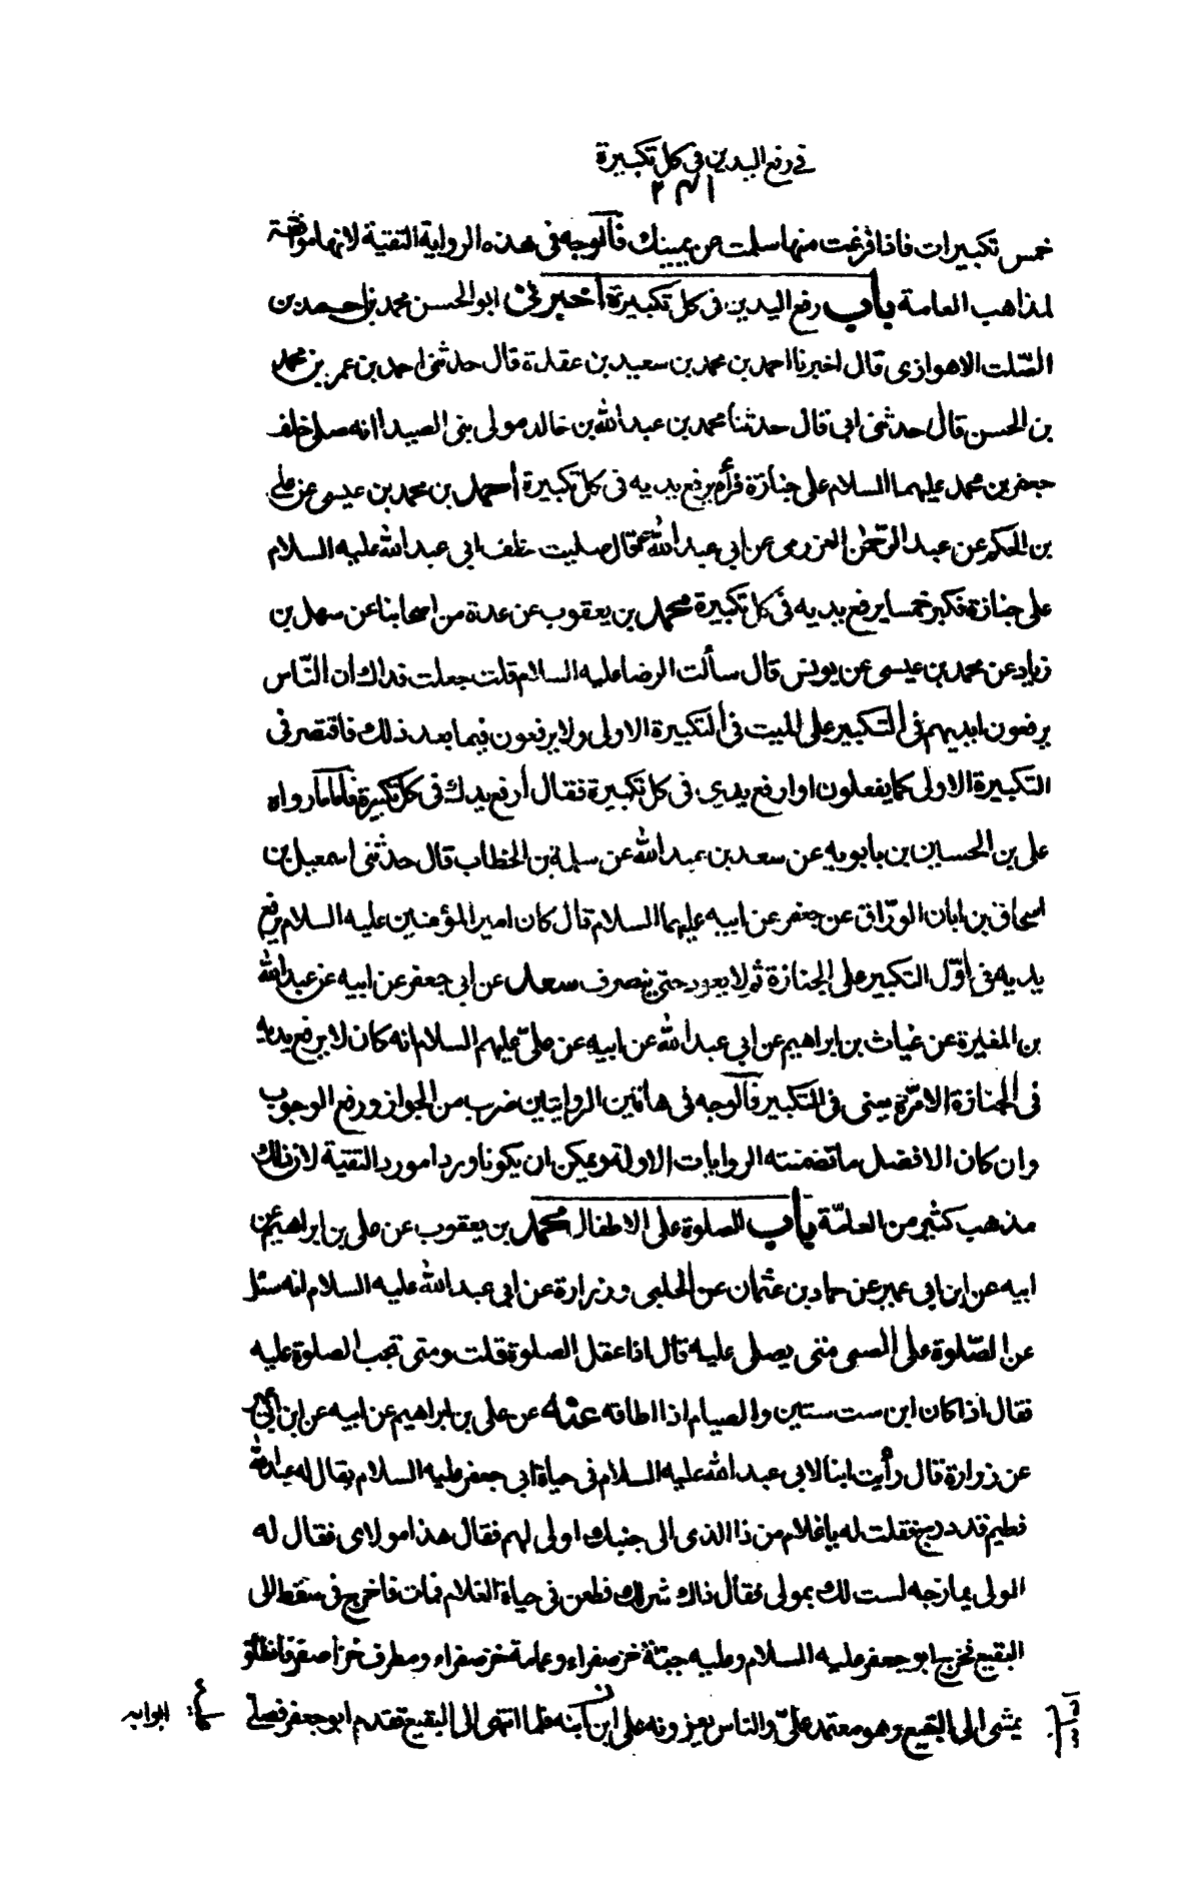 في رفع اليدين في كل تكبيرة
٢٤١
خمس تكبيرات فاذا فرغت منها سلمت عن يمينك فالوجه في هذه الرواية التقية لانها موافقة
لمذاهب العامة باب رفع اليدين في كل تكبيرة أخبرني ابو الحسن محمد بن احمد بن
الصّلت الاهوازى قال اخبرنا احمد بن محمد بن سعيد بن عقدة قال حدثنى احمد بن عمر بن محمد
بن الحسن قال حدثنى ابى قال حدثنا محمد بن عبد الله بن خالد مولى بنى الصيدا انه صلى خلف
جعفر بن محمد عليهما السلام على جنازة فرأه يرفع يديه فى كل تكبيرة أحمد بن محمد بن عيسى عن على
بن الحكم عن عبد الرّحمٰن العزرمى عن ابى عبد الله ع قال صليت خلف ابى عبد الله عليه السلام
على جنازة فكبر خمسا يرفع يديه فى كل تكبيرة محمد بن يعقوب عن عدة من اصحابنا عن سهل بن
زياد عن محمد بن عيسى عن يونس قال سألت الرضا عليه السلام قلت جعلت فداك ان النّاس
يرفعون ايديهم فى التكبير على الميت فى التكبيرة الاولى ولا يرفعون فيما بعد ذلك فاقتصر فى
التكبيرة الاولى كما يفعلون او ارفع يدى فى كل تكبيرة فقال أرفع يدك فى كل تكبيرة فأما ما رواه
على بن الحسين بن بابويه عن سعد بن عبد الله عن سلمة بن الخطاب قال حدثنى اسمعيل بن
اسحاق بن ابان الورّاق عن جعفر عن ابيه عليهما السلام قال كان امير المؤمنين عليه السلام يرفع
يديه فى أوّل التكبير على الجنازة ثم لا يعود حتى ينصرف سعد عن ابى جعفر عن ابيه عن عبد الله
بن المغيرة عن غياث بن ابراهيم عن ابى عبد الله عن ابيه عن علىّ عليهم السلام انه كان لا يرفع يديه
فى الجنازة الا مرّة يعنى فى التكبير فالوجه فى هاتين الروايتين ضرب من الجواز ورفع الوجوب
وان كان الافضل ما تضمنته الروايات الاولة ويمكن ان يكونا وردا مورد التقية لان ذلك
مذهب كثير من العامّة باب الصلوة على الاطفال محمد بن يعقوب عن على بن ابراهيم عن
ابيه عن ابن ابى عمير عن حماد بن عثمان عن الحلبى وزرارة عن ابى عبد الله عليه السلام انه سئل
عن الصّلوة على الصبى متى يصلى عليه قال اذا عقل الصلوة قلت ومتى تجب الصلوة عليه
فقال اذا كان ابن ست سنين والصيام اذا اطاقه عنه عن على بن ابراهيم عن ابيه عن ابن ابى عمير
عن زرارة قال رأيت ابنا لابى عبد الله عليه السلام فى حياة ابى جعفر عليه السلام يقال له عبد الله
فطيم قد درج فقلت له يا غلام من ذا الذى الى جنبك اولى لهم فقال هذا مولاى فقال له
المولى يمازحه لست لك بمولى فقال ذاك شر لك فطعن فى حياة الغلام فمات فاخرج فى سفط الى
البقيع فخرج ابو جعفر عليه السلام وعليه جبّة خز صفراء وعمامة خز صفراء ومطرف خز اصفر فانطلق
يمشى الى البقيع وهو معتمد علىّ والناس يعزونه على ابن ابنه فلما انتهى الى البقيع تقدم ابو جعفر فصلى